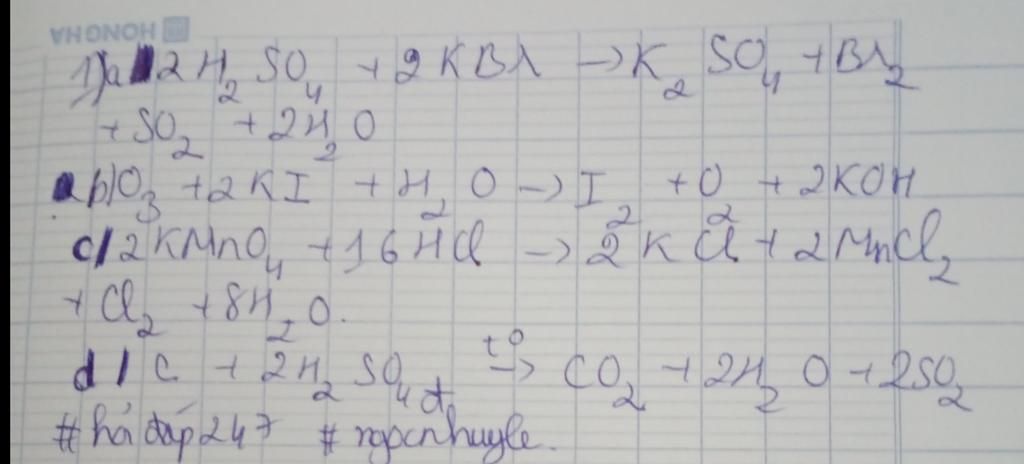 HONGHA
1) a 2H₂SO₄ + 2KBr → K₂SO₄ + Br₂
+ SO₂ + 2H₂O
b) O₃ + 2KI + H₂O → I₂ + O₂ + 2KOH
c/ 2KMnO₄ + 16HCl → 2KCl + 2MnCl₂
+ Cl₂ + 8H₂O.
d/ C + 2H₂SO₄đ t⁰→ CO₂ + 2H₂O + 2SO₂
#hỏi đáp 247 #ngocnhuyle.